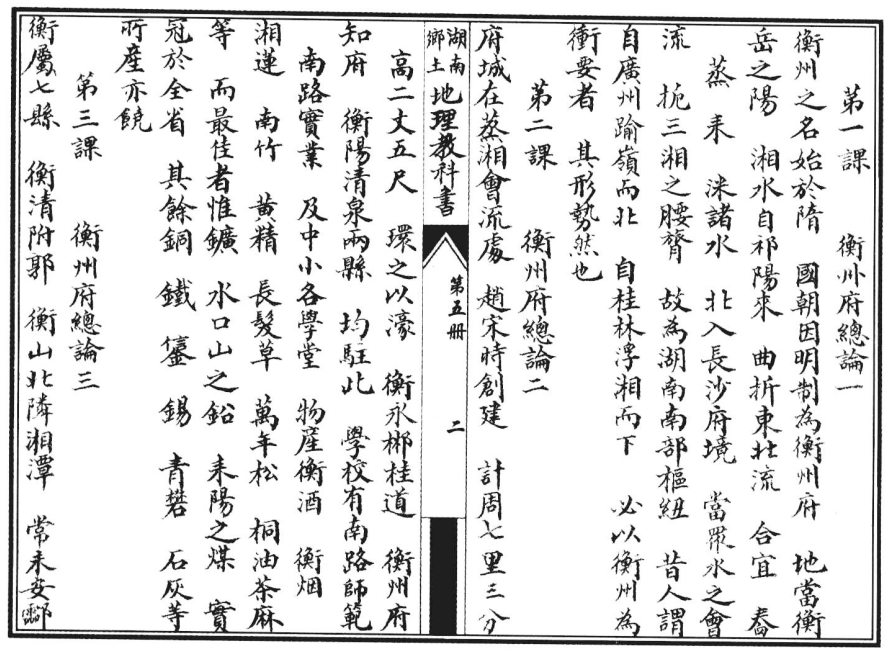 第一課　衡州府總論一
衡州之名始於隋　國朝因明制為衡州府　地當衡
岳之陽　湘水自祁陽來　曲折東北流　合宜　舂
蒸　耒　洣諸水　北入長沙府境　當眾水之會
流　扼三湘之腰膂　故為湖南南部樞紐　昔人謂
自廣州踰嶺而北　自桂林浮湘而下　必以衡州為
衝要者　其形勢然也
第二課　衡州府總論二
府城在蒸湘會流處　趙宋時創建　計周七里三分
湖南鄉土地理教科書　第五冊　二
高二丈五尺　環之以濠　衡永郴桂道　衡州府
知府　衡陽清泉兩縣　均駐此　學校有南路師範
南路實業　及中小各學堂　物產衡酒　衡烟
湘蓮　南竹　黃精　長髮草　萬年松　桐油茶麻
等　而最佳者惟鑛　水口山之鉛　耒陽之煤　實
冠於全省　其餘銅　鐵　鎏　錫　青礬　石灰等
所產亦饒
第三課　衡州府總論三
衡屬七縣　衡清附郭　衡山北隣湘潭　常耒安酃